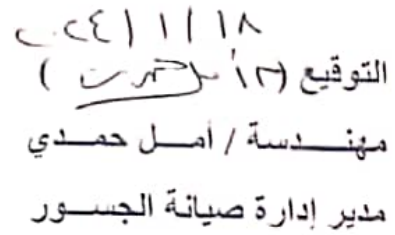 ٢٠٢٤/١/١٨
التوقيع (م. أمل حمدى)
مهندسة / أمل حمدي
مدير إدارة صيانة الجسور